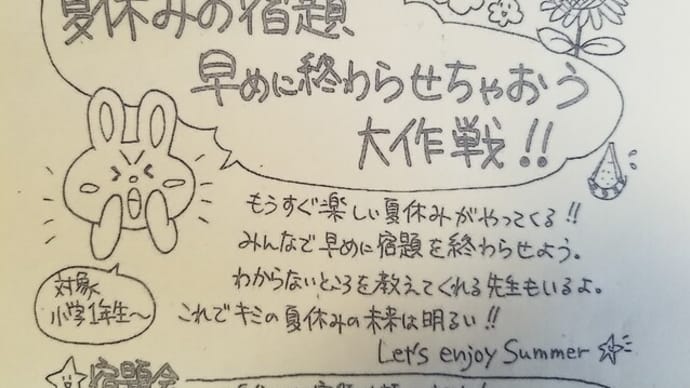 夏休みの宿題
早めに終わらせちゃおう
大作戦!!
もうすぐ楽しい夏休みがやってくる!!
みんなで早めに宿題を終わらせよう。
わからないところを教えてくれる先生もいるよ。
これでキミの夏休みの未来は明るい!!
Let's enjoy Summer
対象
小学1年生～
宿題会